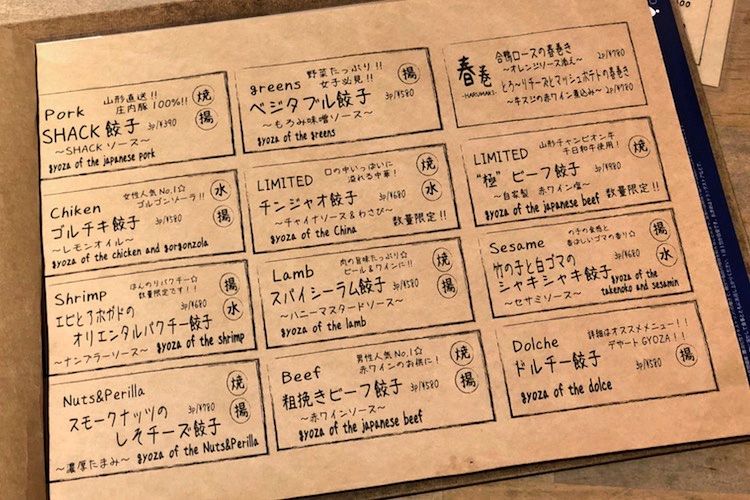 Pork
山形直送!!
庄内豚100%!!
焼
揚
SHACK 餃子 3p/¥390
～SHACK ソース～
gyoza of the japanese pork
greens
野菜たっぷり!!
女子必見!!
揚
ベジタブル餃子 3p/¥580
～もろみ味噌ソース～
gyoza of the greens
春巻
-HARUMAKI-
合鴨ロースの春巻き 2p/¥780
～オレンジソース添え～
とろ～りチーズとマッシュポテトの春巻き
～牛スジの赤ワイン煮込み～ 2p/¥780
Chiken
女性人気No.1☆
ゴルゴンゾーラ!!
水
揚
ゴルチキ餃子 3p/¥580
～レモンオイル～
gyoza of the chicken and gorgonzola
LIMITED
口の中いっぱいに
溢れる中華!
焼
水
チンジャオ餃子 3p/¥680
～チャイナソース&わさび～
gyoza of the China
数量限定!!
LIMITED
山形チャンピオン牛
千日和牛使用!
焼
"極" ビーフ餃子 3p/¥980
～自家製 赤ワイン塩～
gyoza of the japanese beef
数量限定!!
Shrimp
ほんのりパクチー☆
数量限定です!!
揚
水
エビとアボガドの 3p/¥680
オリエンタルパクチー餃子
～ナンプラーソース～
gyoza of the shrimp
Lamb
肉の旨味たっぷり☆
ビール&ワインに!!
焼
揚
スパイシーラム餃子 3p/¥580
～ハニーマスタードソース～
gyoza of the lamb
Sesame
竹の子の食感と
香ばしいゴマの香り☆
焼
揚
竹の子と白ゴマの 3p/¥680
シャキシャキ餃子
～セサミソース～
gyoza of the
takenoko and sesamin
Nuts&Perilla
焼
揚
スモークナッツの 3p/¥780
しそチーズ餃子
～濃厚たまみ～
gyoza of the Nuts&Perilla
Beef
男性人気No.1☆
赤ワインのお供に!
焼
揚
粗挽きビーフ餃子 3p/¥580
～赤ワインソース～
gyoza of the japanese beef
Dolche
詳細はオススメメニュー!!
デザートGYOZA!!
ドルチー餃子 3p/¥580
gyoza of the dolce